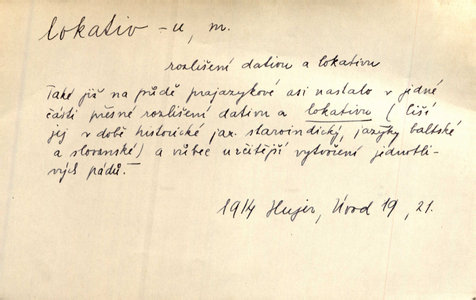 lokativ -u, m.
rozlišení dativu a lokativu
Také již na půdě prajazykové asi nastalo v jedné
části přesné rozlišení dativu a lokativu (liší
jej v době historické jaz. staroindický, jazyky baltské
a slovanské) a vůbec určitější vytvoření jednotli-
vých pádů.
1914 Hujer, Úvod 19, 21.